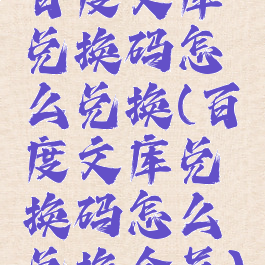 百度文库
兑换码怎
么兑换(百
度文库兑
换码怎么
兑换会员)